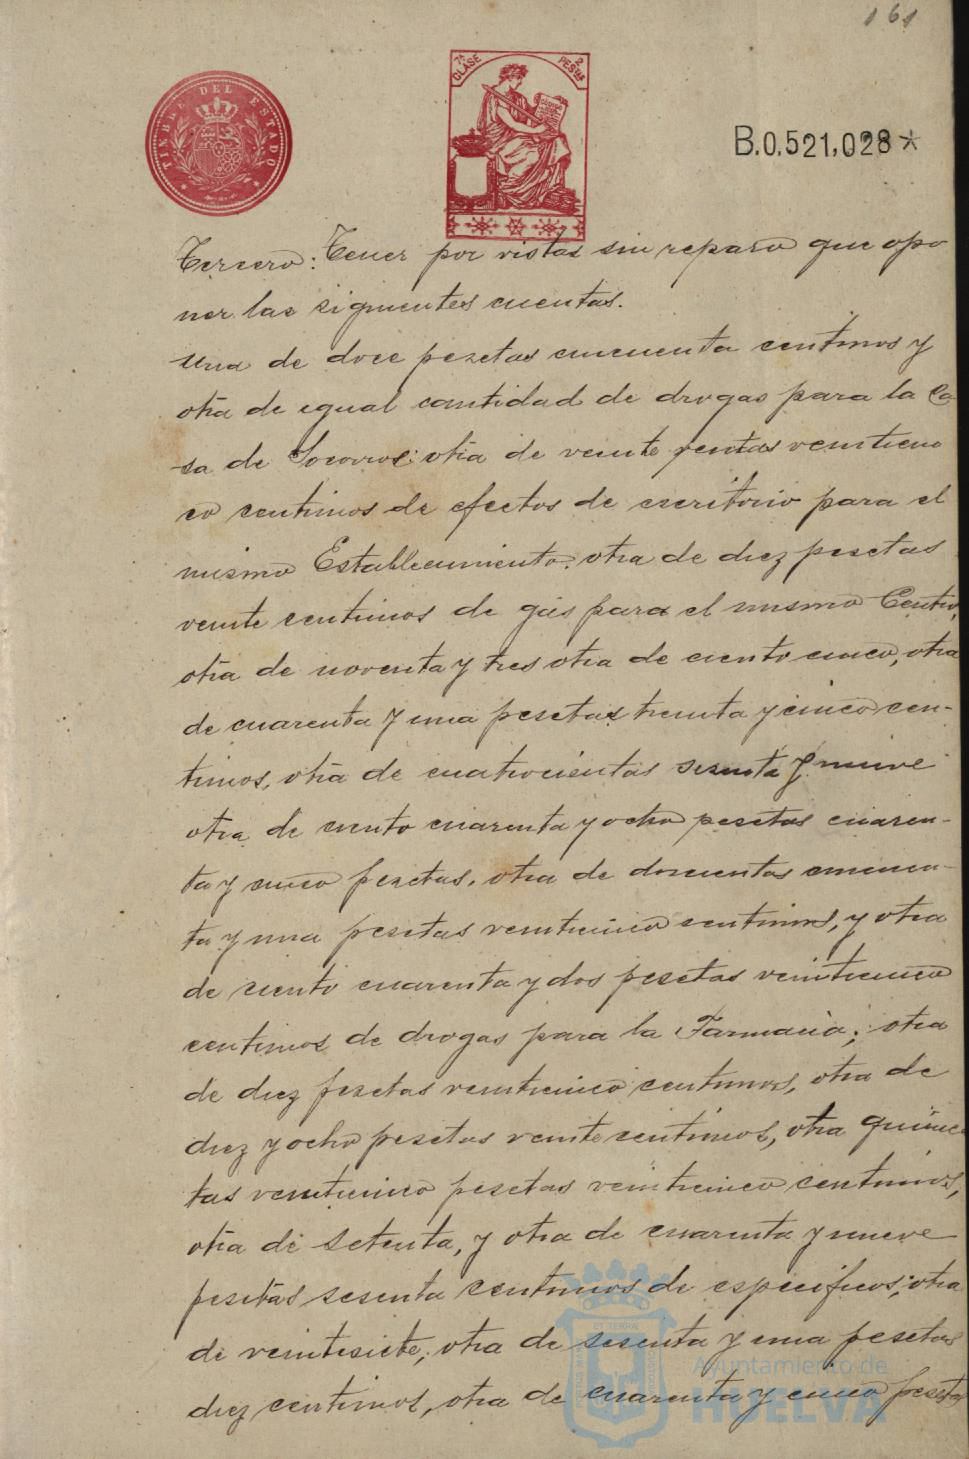 161
TIMBRE DEL ESTADO
7ª CLASE 2 PESTAS
B.0.521,028*
Tercero: Tener por vistas sin reparo que opo
ner las siguientes cuentas.
Una de doce pesetas cincuenta centimos y
otra de egual cantidad de drogas para la Ca
sa de Socorros: otra de veinte pentas veinticin
co centimos de efectos de escritorio para el
mismo Establecimiento. otra de diez pesetas
veinte centimos de gas para el mismo Centro,
otra de noventa y tres otra de ciento cinco, otra
de cuarenta y una pesetas treinta y cinco cen-
timos, otra de cuatrocientas sesenta y nueve
otra de ciento cuarenta y ocho pesetas cuaren-
ta y cinco pesetas. otra de doscientas cincuen-
ta y una pesetas veinticinco centimos, y otra
de ciento cuarenta y dos pesetas veinticinco
centimos de drogas para la Farmacia; otra
de diez pesetas veinticinco centimos, otra de
diez y ocho pesetas veinte centimos, otra quinien
tas veinticinco pesetas veinticinco centimos,
otra de setenta, y otra de cuarenta y nueve
pesetas sesenta centimos de especificos; otra
de veintesiete; otra de sesenta y una pesetas
diez centimos, otra de cuarenta y cinco pesetas
Ayuntamiento de
HUELVA